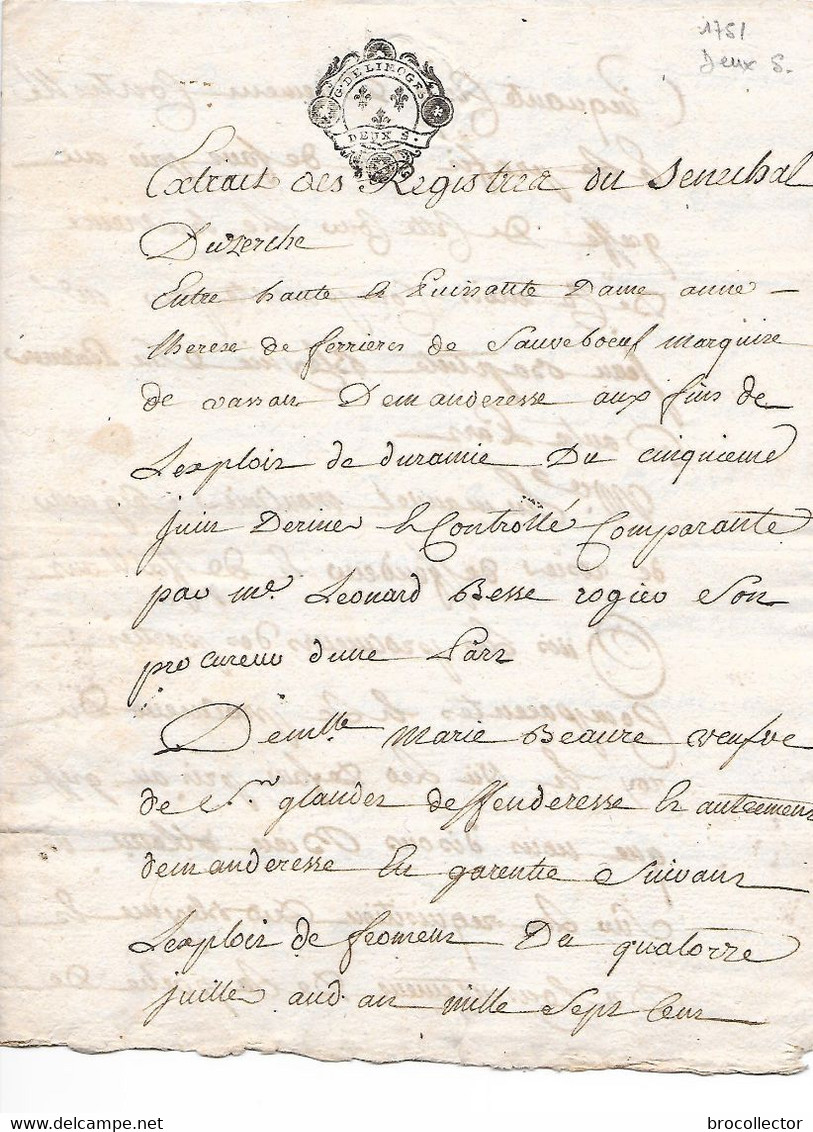 1751
Deux S.
G. DE LIMOGES
DEUX S.
Extrait des Registrer du Senechal
Duzerche
Entre haute & Puissante Dame anne
therese de ferrieres de Sauveboeuf marquise
de vassan Demanderesse aux fins de
Lexploit de duramie Du cinquieme
juin Dernier & Controllé Comparante
par me. Leonard Besse rogier son
procureur dune Part
Demlle marie Beaure veufve
de Sr. glandes deffenderesse & autremens
demanderesse En garentie Suivant
Lexploit de feomens Du quatorze
juillet aud. an mille Sept Cens
brocollector